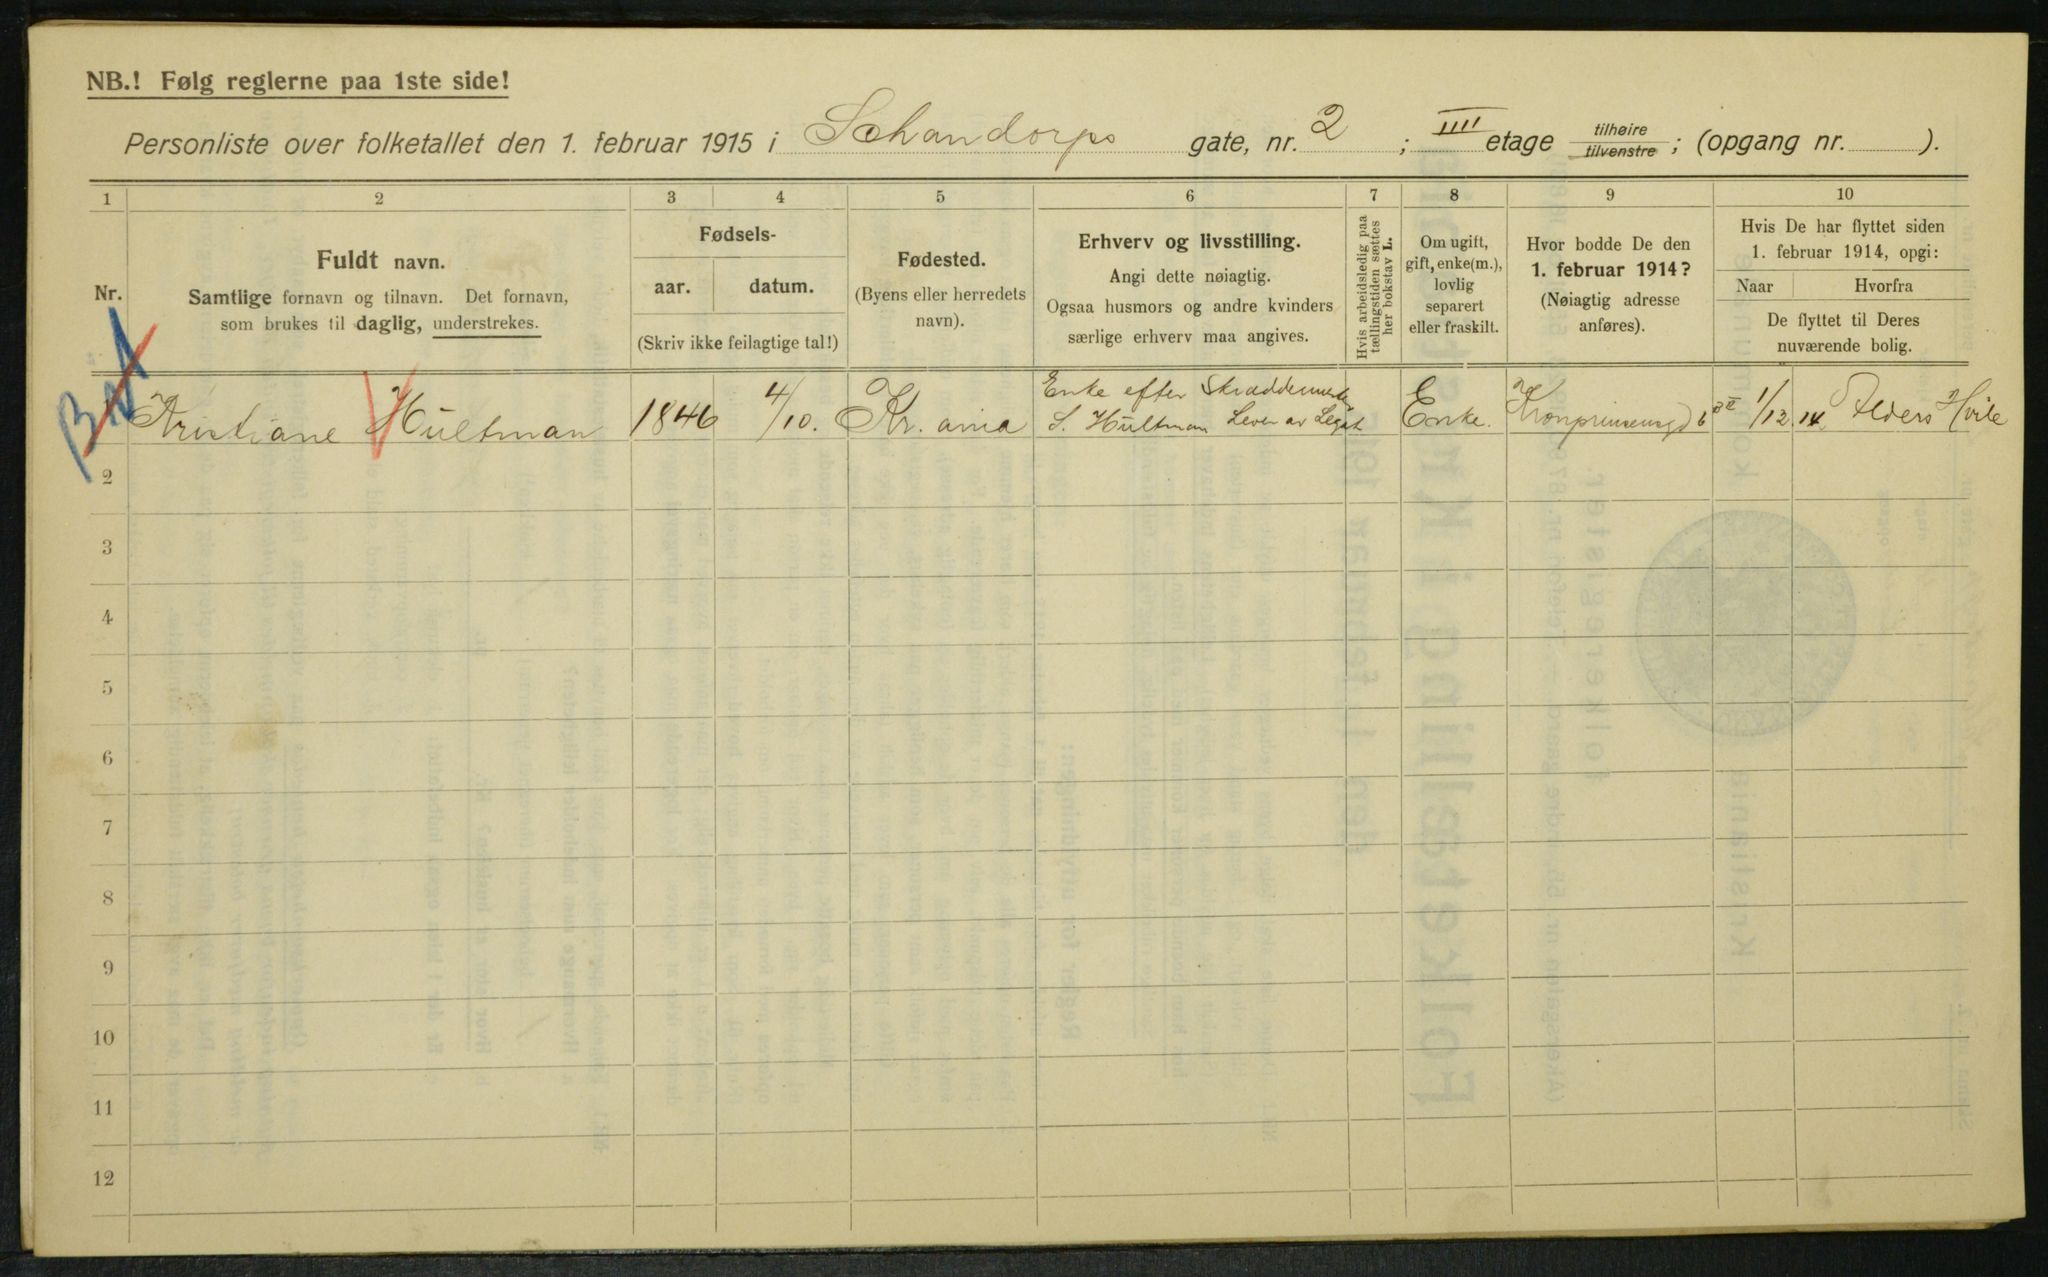 NB.! Følg reglerne paa 1ste side!
Personliste over folketallet den 1. februar 1915 i Schandorps gate, nr. 2 ; IIII etage tilhøire tilvenstre ; (opgang nr. ).
1 2 3 4 5 6 7 8 9 10
Nr.
Fuldt navn.
Samtlige fornavn og tilnavn. Det fornavn,
som brukes til daglig, understrekes.
Fødsels-
aar. datum.
(Skriv ikke feilagtige tal!)
Fødested.
(Byens eller herredets
navn).
Erhverv og livsstilling.
Angi dette nøiagtig.
Ogsaa husmors og andre kvinders
særlige erhverv maa angives.
Hvis arbeidsledig paa
tællingstiden sættes
her bokstav L.
Om ugift,
gift, enke(m.),
lovlig
separert
eller fraskilt.
Hvor bodde De den
1. februar 1914?
(Nøiagtig adresse
anføres).
Hvis De har flyttet siden
1. februar 1914, opgi:
Naar Hvorfra
De flyttet til Deres
nuværende bolig.
Kristiane Hültman 1846 4/10. Kr.ania Enke efter Skræddermester
S. Hültman Lever av Legat Enke. 1/12 14 Alders Hvile
2
3
4
5
6
7
8
9
10
11
12